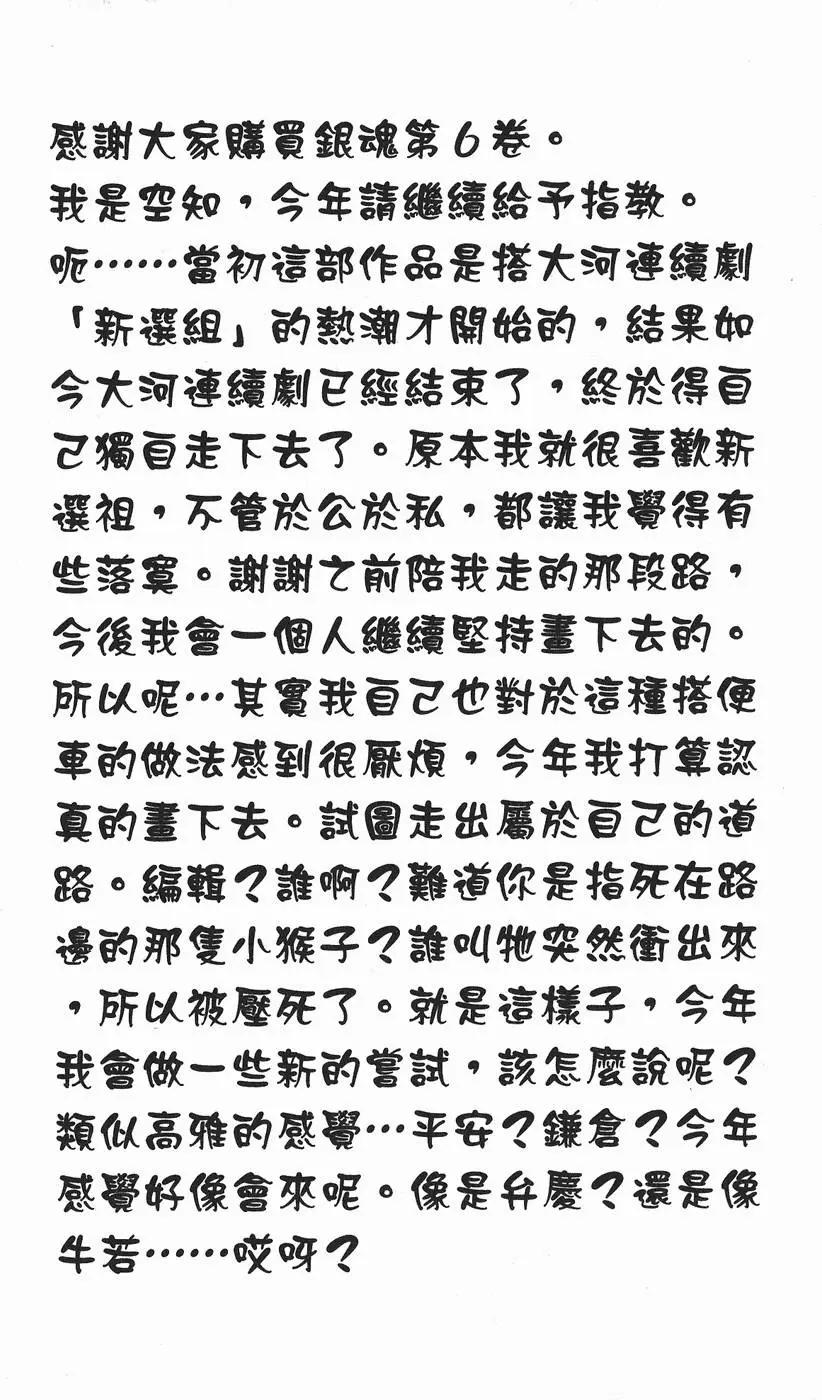 感謝大家購買銀魂第6卷。
我是空知，今年請繼續給予指教。
呃……當初這部作品是搭大河連續劇
「新選組」的熱潮才開始的，結果如
今大河連續劇已經結束了，終於得自
己獨自走下去了。原本我就很喜歡新
選祖，不管於公於私，都讓我覺得有
些落寞。謝謝之前陪我走的那段路，
今後我會一個人繼續堅持畫下去的。
所以呢…其實我自己也對於這種搭便
車的做法感到很厭煩，今年我打算認
真的畫下去。試圖走出屬於自己的道
路。編輯？誰啊？難道你是指死在路
邊的那隻小猴子？誰叫牠突然衝出來
，所以被壓死了。就是這樣子，今年
我會做一些新的嘗試，該怎麼說呢？
類似高雅的感覺…平安？鎌倉？今年
感覺好像會來呢。像是弁慶？還是像
牛若……哎呀？